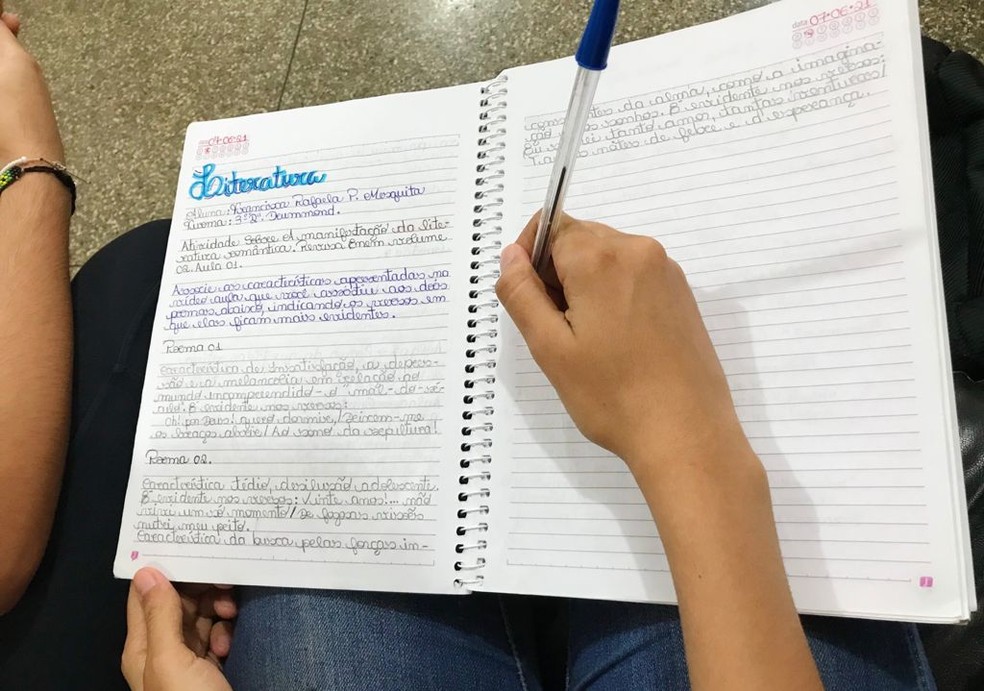 07.06.21
Literatura
Aluna: Francisca Rafaela P. Mesquita
Turma: 3ª "B". Drummond.
Atividade sobre A manifestação da lite-
ratura romântica. Revisa Enem volume
02. Aula 01.
Associe as características apresentadas na
vídeo aula que você assistiu aos dois
poemas abaixo, indicando os versos em
que elas ficam mais evidentes.
Poema 01
Característica de Insatisfação, a depres-
são e a melancolia em relação ao
mundo incompreendido - o "mal-do-sé-
culo". É evidente nos versos:
oh! por Deus! quero dormire/ Deixem-me
os braços abrire/ Ao sono da sepultura!
Poema 02.
Característica tédio, desilusão adolescente.
É evidente nos versos: Vinte anos!... não
vivi um só momento/ De fagazes visões
nutri meu peito.
Característica da busca pelas forças in-
data 07.06.21
da alma, como a imagina-
sonhos. É evidente nos versos:
tanto amor, tantas venturas/
noites de febre e d'esperança.